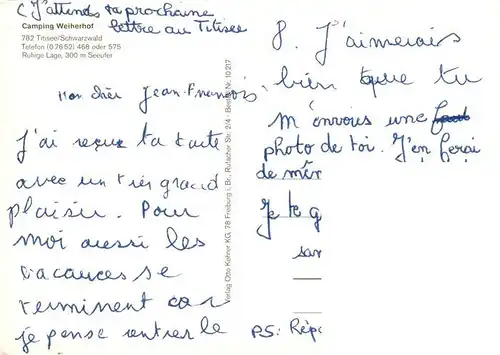 (J'attends ta prochaine
lettre au Titisee
Camping Weiherhof
782 Titisee/Schwarzwald
Telefon (07652) 468 oder 575
Ruhige Lage, 300 m Seeufer
Mon cher Jean-François,
J'ai reçu ta carte
avec un très grand
plaisir. Pour
moi aussi les
vacances se
terminent car
je pense rentrer le
Verlag Otto Kellner KG, 78 Freiburg i. Br., Rufacher Str. 2/4 · Bestell-Nr. 10217
8. J'aimerais
bien que tu
m'envoies une
photo de toi. J'en ferai
de mêm
Je te g
san
PS: Répo